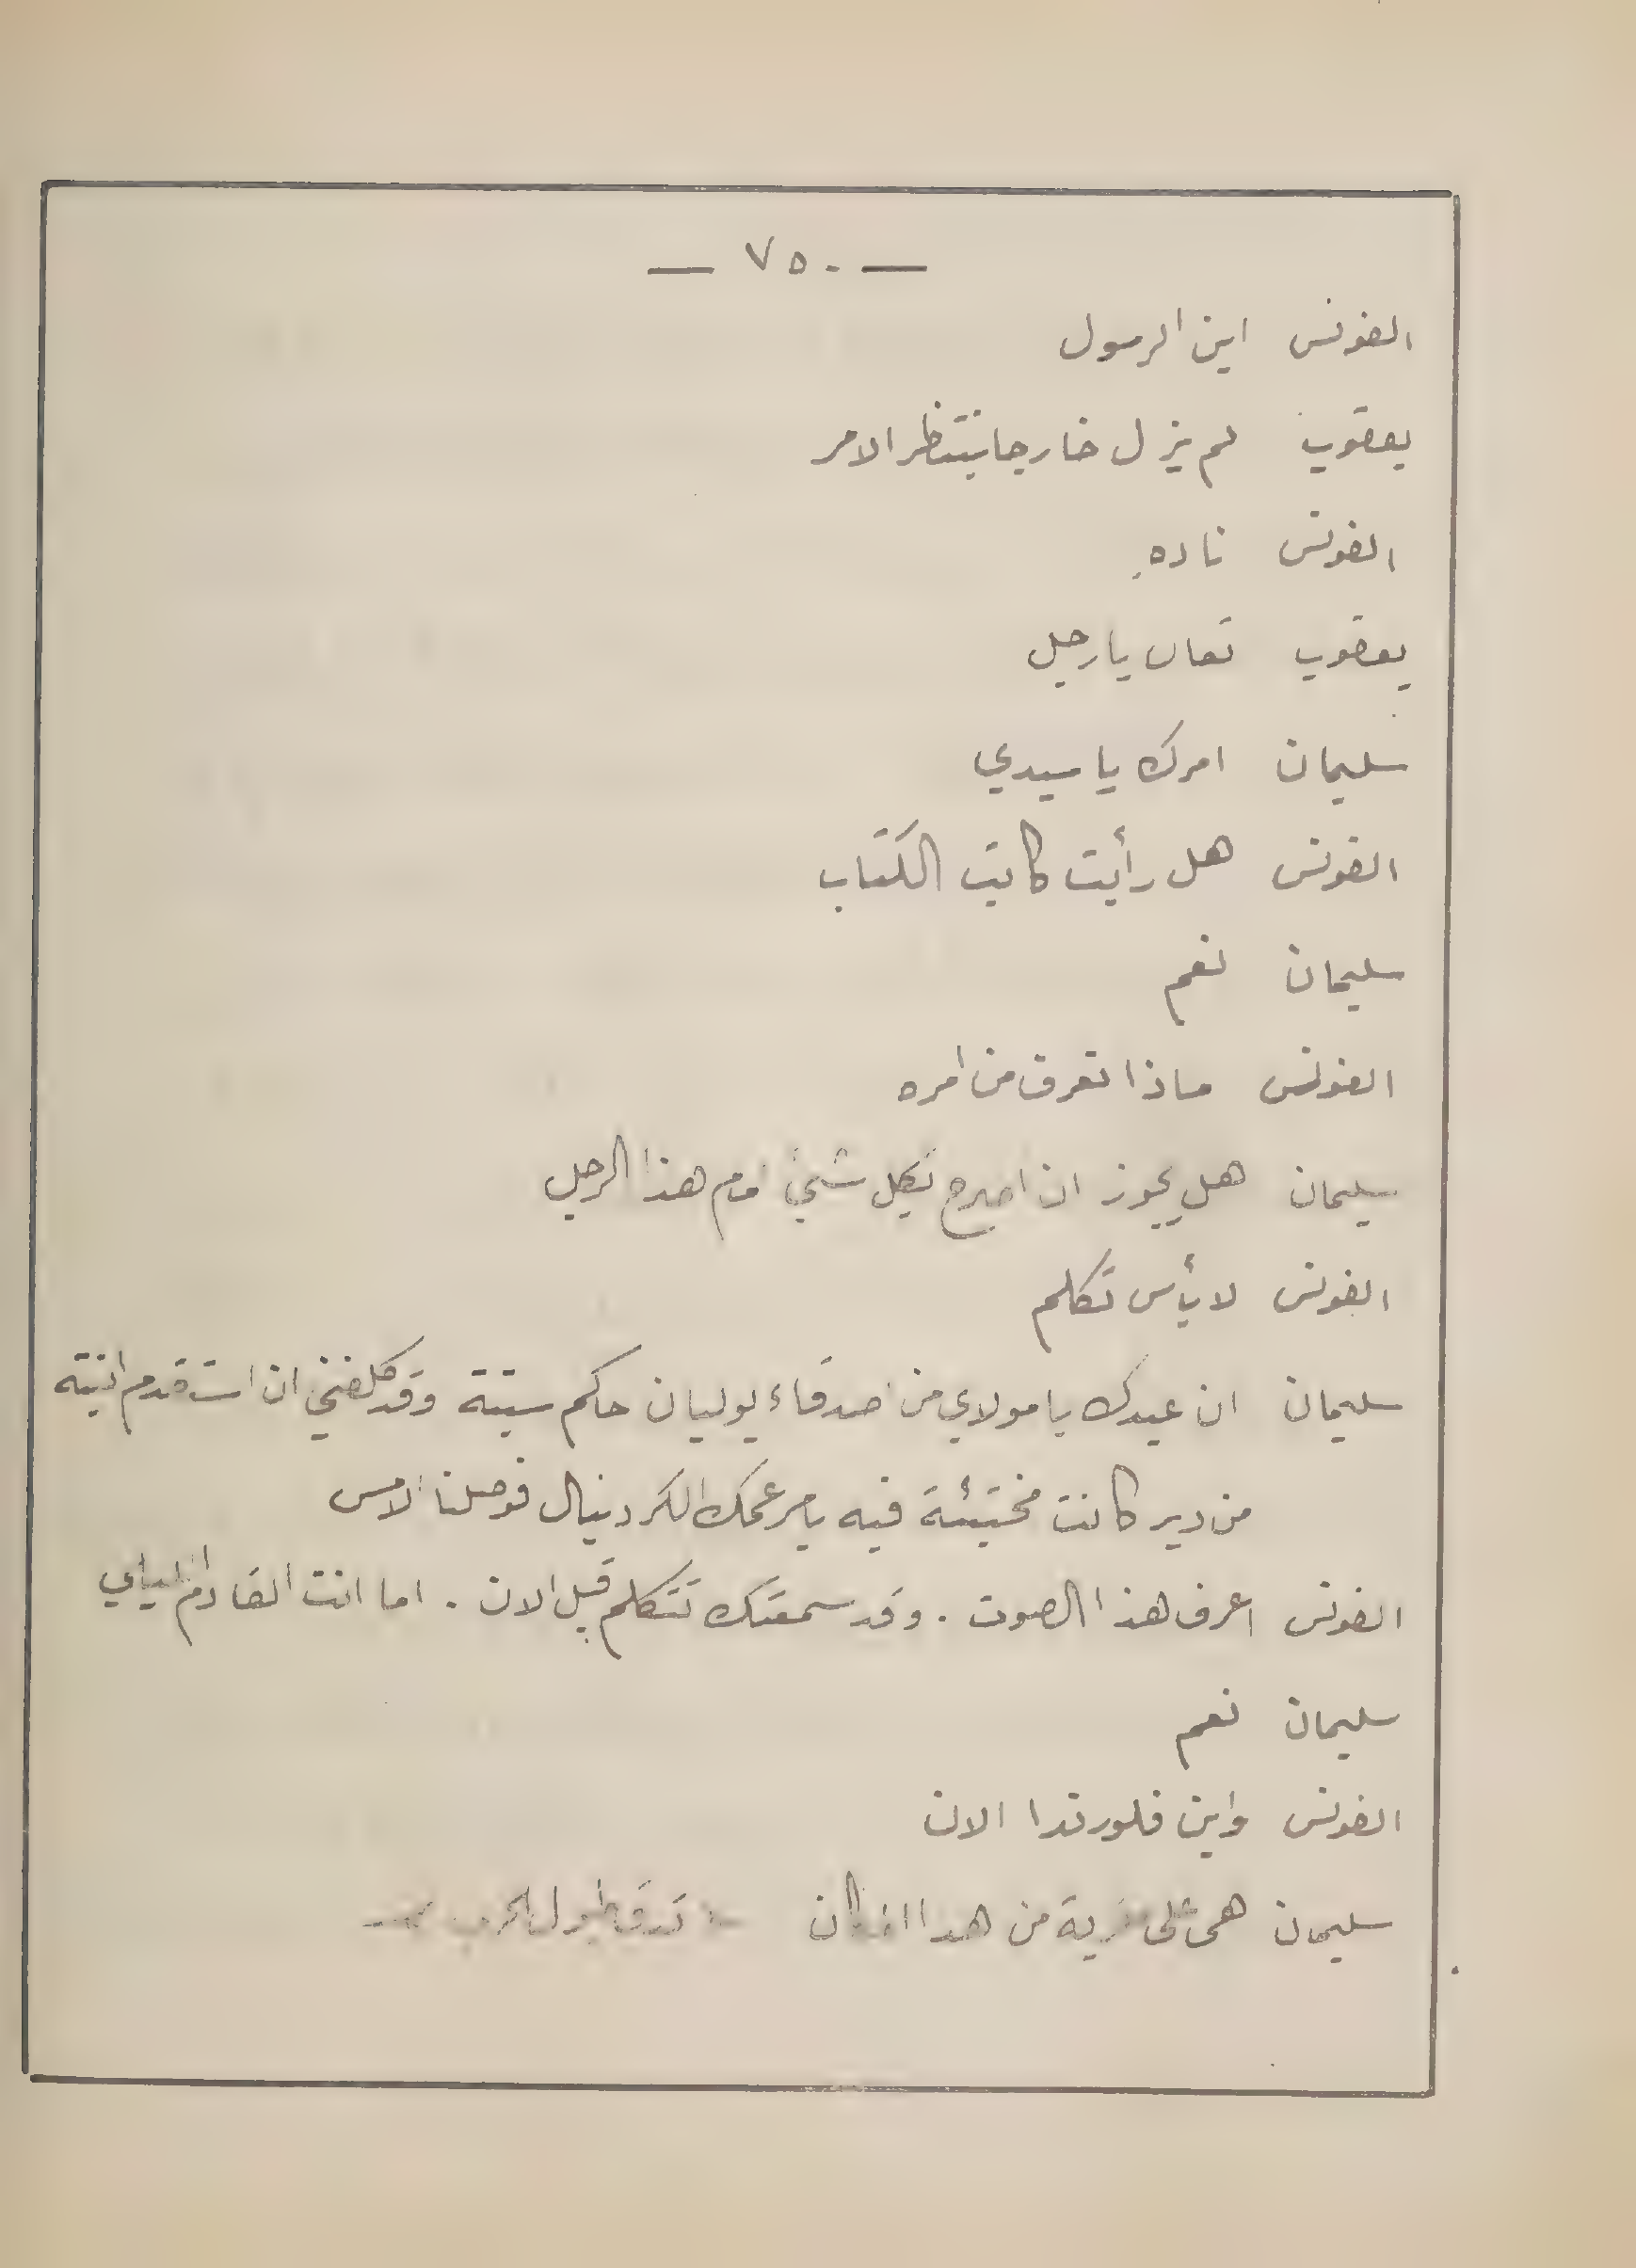 — ٧٥٠ —
الفونس اين الرسول
يعقوب لم يزل خارجا ينتظر الامر
الفونس ناده
يعقوب تعال يا رجل
سليمان امرك يا سيدي
الفونس هل رأيت كاتب الكتاب
سليمان نعم
الفونس ماذا تعرف من امره
سليمان هل يجوز ان اصرح بكل شيئ امام هذا الرجل
الفونس لا بأس تكلم
سليمان ان عبدك يا مولاي من اصدقاء يوليان حاكم سبتة وقد كلفني ان استقدم ابنته
من دير كانت مختبئة فيه بامر عمك الكردينال فوصلنا الامس
الفونس اعرف هذا الصوت . وقد سمعتك تتكلم قبل الان . اما انت القادم
سليمان نعم
الفونس واين فلورندا الان
سليمان هى على من هذا